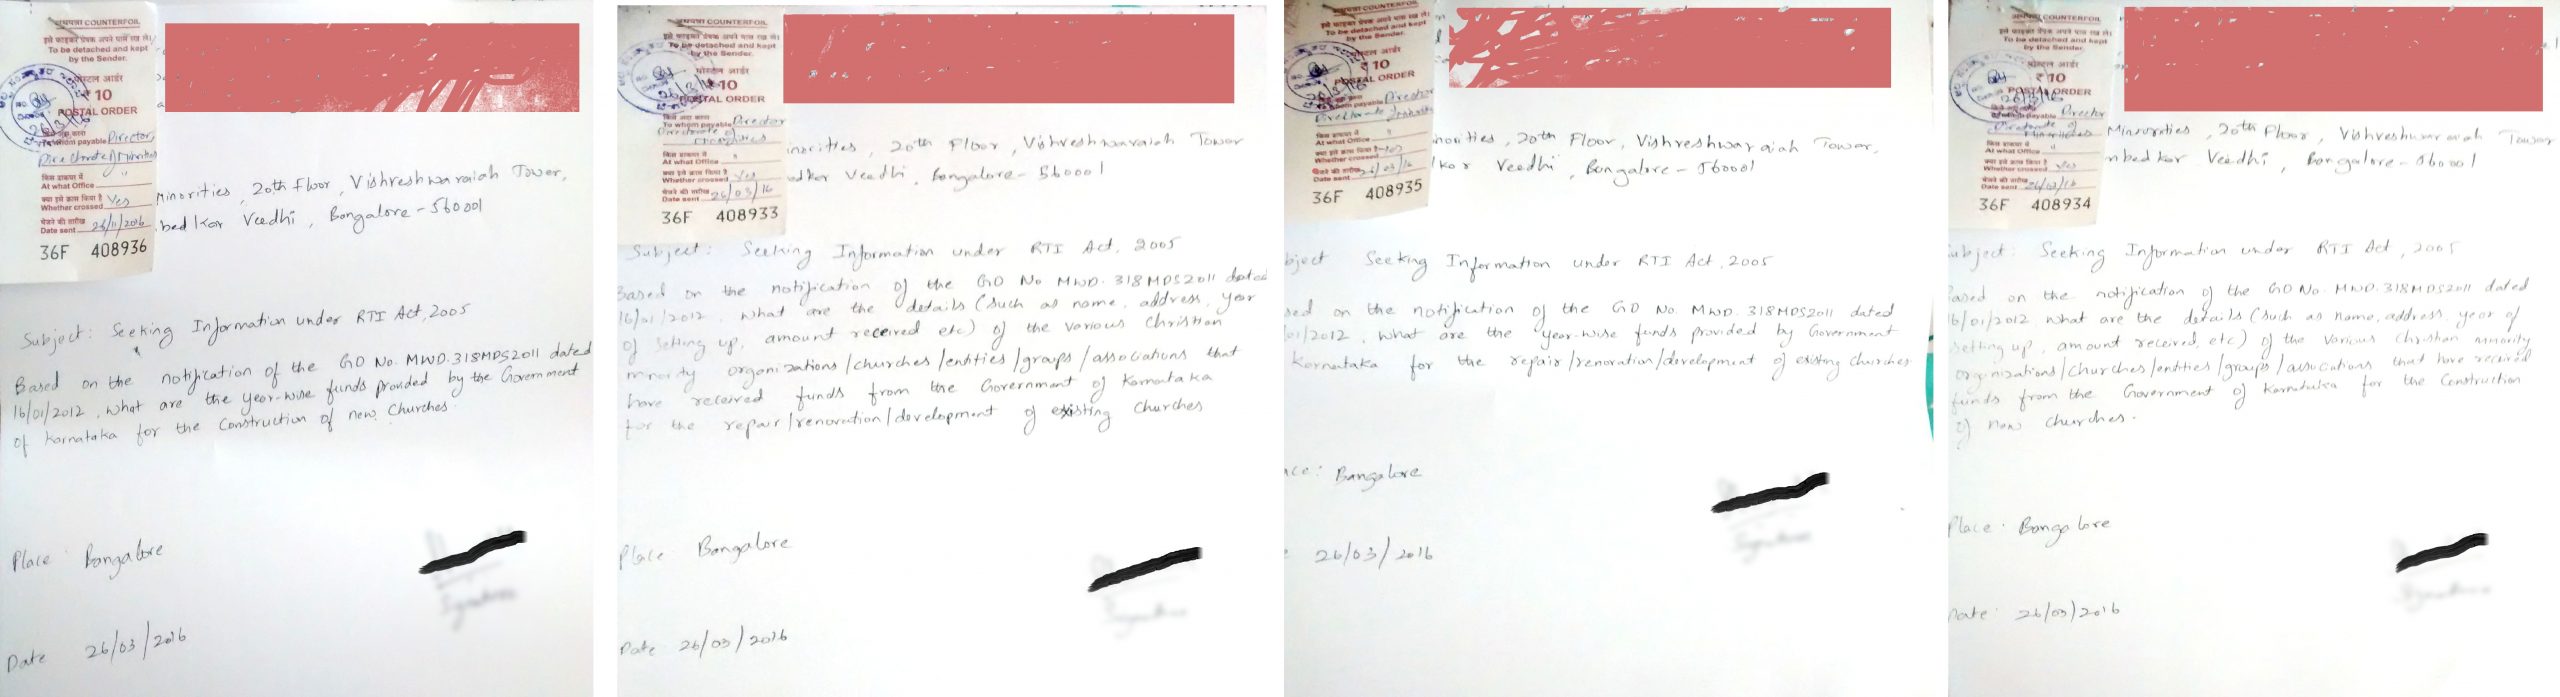 COUNTERFOIL
To be detached and kept
by the Sender.
पोस्टल आर्डर
₹ 10
POSTAL ORDER
26/3/16
To whom payable Director,
Directorate of Minorities
किस डाकघर में
At what Office "
Whether crossed Yes
Date sent 26/11/2016
36F 408936
Minorities, 20th Floor, Vishreshwaraiah Tower,
bedkar Veedhi, Bangalore - 560001
Subject: Seeking Information under RTI Act, 2005
Based on the notification of the GO No. MWD.318MDS2011 dated
16/01/2012, what are the year-wise funds provided by the Government
of Karnataka for the Construction of new Churches.
Place: Bangalore
Date 26/03/2016
COUNTERFOIL
To be detached and kept
by the Sender.
पोस्टल आर्डर
₹ 10
POSTAL ORDER
26/3/16
To whom payable Director
Directorate of
Minorities
किस डाकघर में
At what Office "
Whether crossed Yes
Date sent 26/03/16
36F 408933
inorities, 20th Floor, Vishreshwaraiah Tower
edkar Veedhi, Bangalore - 560001
Subject: Seeking Information under RTI Act, 2005
Based on the notification of the GO No MWD. 318MDS2011 dated
16/01/2012, what are the details (such as name, address, year
of setting up, amount received etc) of the various Christian
minority organizations/churches/entities/groups/associations that
have received funds from the Government of Karnataka
for the repair/renovation/development of existing churches
Place: Bangalore
Date 26/03/2016
COUNTERFOIL
To be detached and kept
by the Sender.
पोस्टल आर्डर
₹ 10
POSTAL ORDER
26/3/16
whom payable Director
Directorate
At what Office "
Whether crossed Yes
Date sent 26/03/16
36F 408935
norities, 20th Floor, Vishreshwaraiah Tower,
kar Veedhi, Bangalore - 560001
bject Seeking Information under RTI Act, 2005
sed on the notification of the GO No. MWD. 318MDS2011 dated
01/2012, what are the year-wise funds provided by Government
Karnataka for the repair/renovation/development of existing churches
ace: Bangalore
26/03/2016
COUNTERFOIL
To be detached and kept
by the Sender.
पोस्टल आर्डर
₹ 10
POSTAL ORDER
26/3/16
whom payable Director
Directorate of
Minorities
किस डाकघर में
At what Office "
Whether crossed Yes
Date sent 26/03/16
36F 408934
Minorities, 20th Floor, Vishreshwaraiah Tower
mbedkar Veedhi, Bangalore - 560001
ubject: Seeking Information under RTI Act, 2005
ased on the notification of the GO No. MWD. 318MDS2011 dated
16/01/2012 what are the details (such as name, address, year of
setting up, amount received, etc) of the various Christian minority
organizations/churches/entities/groups/associations that have received
funds from the Government of Karnataka for the Construction
of new churches.
Place: Bangalore
Date: 26/03/2016